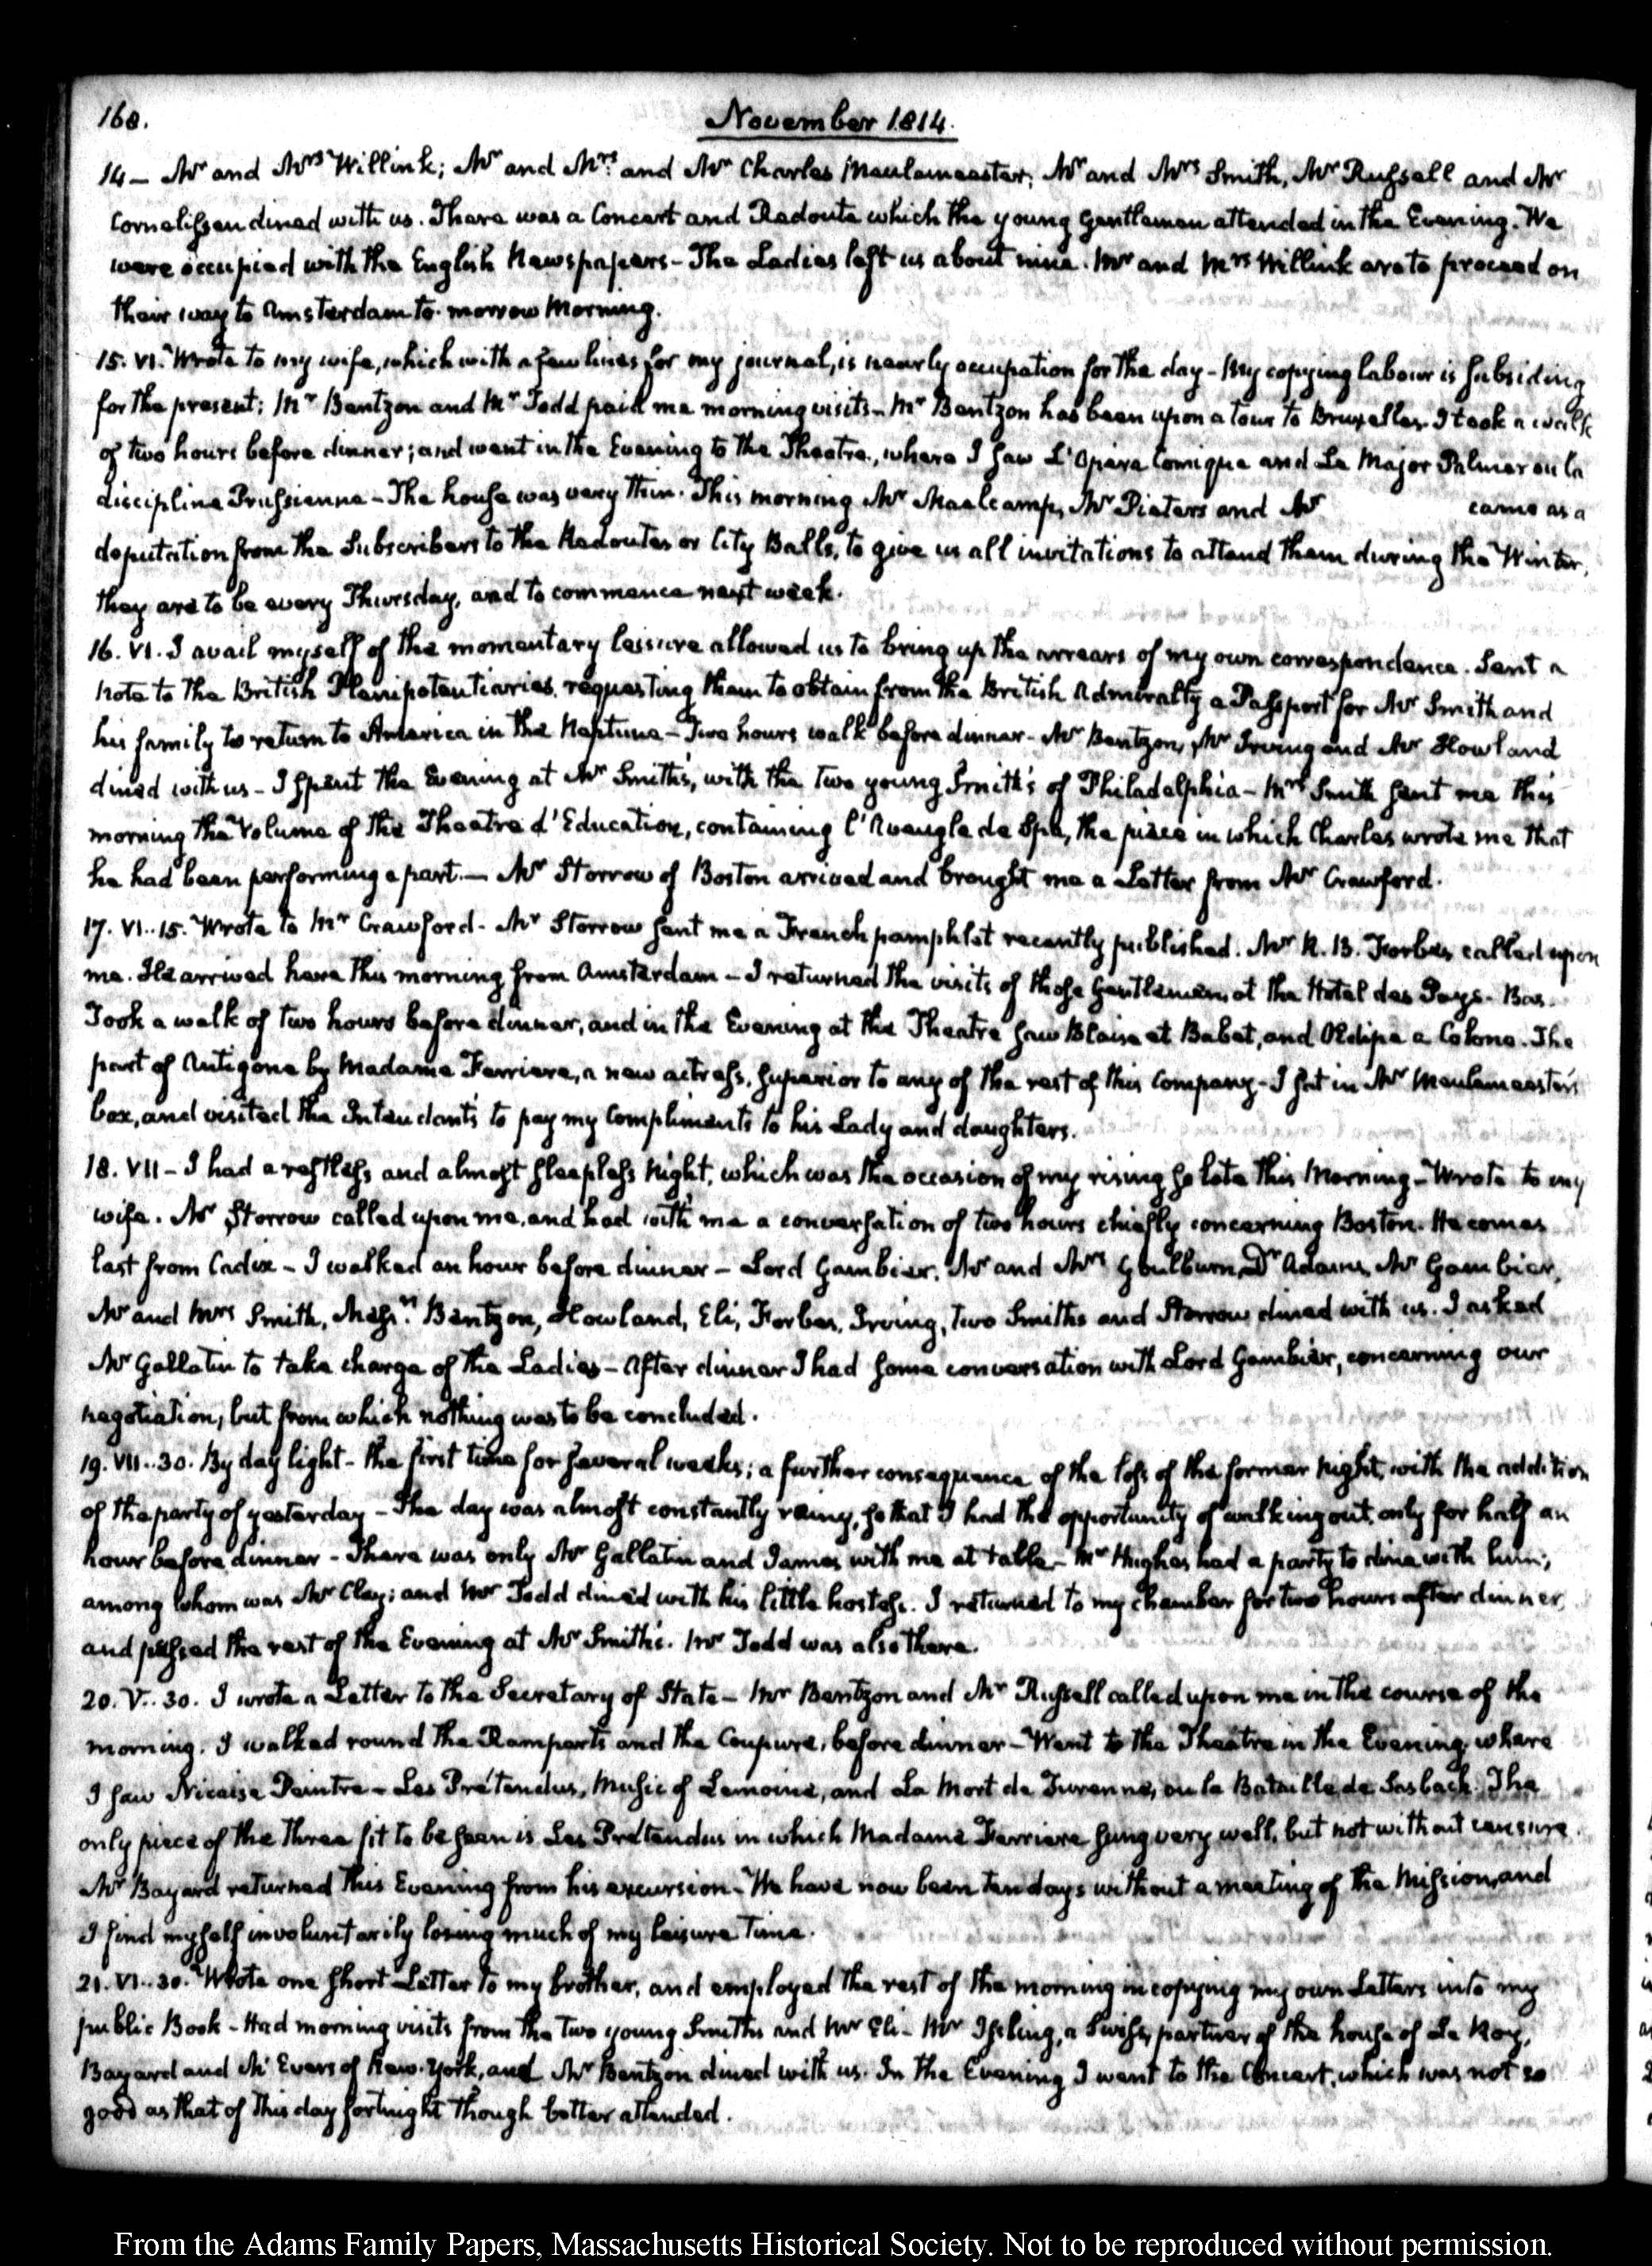 168.
November 1814.
14 – Mr and Mrs Willink; Mr and Mrs and Mr Charles Meulemeester; Mr and Mrs Smith, Mr Russell and Mr
Cornelissen dined with us. There was a Concert and Redoute which the young Gentlemen attended in the Evening. We
were occupied with the English Newspapers – The Ladies left us about nine. Mr and Mrs Willink are to proceed on
their way to Amsterdam to-morrow Morning.
15. VI. Wrote to my wife, which with a few lines for my journal, is nearly occupation for the day – My copying labour is subsiding
for the present: Mr Bentzon and Mr Todd paid me morning visits – Mr Bentzon has been upon a tour to Bruxelles. I took a walk
of two hours before dinner; and went in the Evening to the Theatre, where I saw L'Opera Comique and Le Major Palmer ou la
discipline Prussienne – The house was very thin. This morning Mr Maelcamp, Mr Pieters and Mr came as a
deputation from the Subscribers to the Redoutes or City Balls, to give us all invitations to attend them during the Winter,
they are to be every Thursday, and to commence next week.
16. VI. I avail myself of the momentary leisure allowed us to bring up the arrears of my own correspondence. Sent a
Note to the British Plenipotentiaries, requesting them to obtain from the British Admiralty a Passport for Mr Smith and
his family to return to America in the Neptune – Two hours walk before dinner – Mr Bentzon, Mr Irving and Mr Howland
dined with us – I spent the Evening at Mr Smith's, with the two young Smith's of Philadelphia – Mrs Smith sent me this
morning the Volume of the Theatre d'Education, containing l'Aveugle de Spa, the piece in which Charles wrote me that
he had been performing a part. – Mr Storrow of Boston arrived and brought me a Letter from Mr Crawford.
17. VI..15. Wrote to Mr Crawford – Mr Storrow sent me a French pamphlet recently published. Mr R. B. Forbes called upon
me. He arrived here this morning from Amsterdam – I returned the visits of those Gentlemen, at the Hotel des Pays-Bas.
Took a walk of two hours before dinner, and in the Evening at the Theatre saw Blaise et Babet, and Œdipe a Colone. The
part of Antigone by Madame Ferriere, a new actress, superior to any of the rest of this Company – I sat in Mr Meulemeester's
box, and visited the Intendant's to pay my Compliments to his Lady and daughters.
18. VII – I had a restless, and almost sleepless Night, which was the occasion of my rising so late this Morning – Wrote to my
wife. Mr Storrow called upon me, and had with me a conversation of two hours chiefly concerning Boston. He comes
last from Cadix – I walked an hour before dinner – Lord Gambier, Mr and Mrs Goulburn, Dr Adams, Mr Gambier,
Mr and Mrs Smith, Messrs. Bentzon, Howland, Eli, Forbes, Irving, two Smiths and Storrow dined with us. I asked
Mr Gallatin to take charge of the Ladies – After dinner I had some conversation with Lord Gambier, concerning our
negotiation, but from which nothing was to be concluded.
19. VII..30. By day light – the first time for several weeks; a further consequence of the loss of the former night, with the addition
of the party of yesterday – The day was almost constantly rainy, so that I had the opportunity of walking out, only for half an
hour before dinner – There was only Mr Gallatin and James with me at table – Mr Hughes had a party to dine with him,
among whom was Mr Clay; and Mr Todd dined with his little hostess. I returned to my chamber for two hours after dinner,
and passed the rest of the Evening at Mr Smith's. Mr Todd was also there.
20. V..30. I wrote a Letter to the Secretary of State – Mr Bentzon and Mr Russell called upon me in the course of the
morning. I walked round the Ramparts and the Coupure, before dinner – Went to the Theatre in the Evening, where
I saw Nicaise Peintre – Les Prétendus, Music of Lemoine, and La Mort de Turenne, ou la Bataille de Sasbach. The
only piece of the three fit to be seen is Les Prétendus in which Madame Ferriere sung very well, but not without censure.
Mr Bayard returned this Evening from his excursion – We have now been ten days without a meeting of the Mission, and
I find myself involuntarily losing much of my leisure Time.
21. VI..30. Wrote one short Letter to my brother, and employed the rest of the morning in copying my own Letters into my
public Book – Had morning visits from the two young Smiths and Mr Eli – Mr Iseling, a Swiss, partner of the house of Le Roy,
Bayard and Mc Evers of New-York, and Mr Bentzon dined with us. In the Evening I went to the Concert, which was not so
good as that of this day fortnight though better attended.
From the Adams Family Papers, Massachusetts Historical Society. Not to be reproduced without permission.